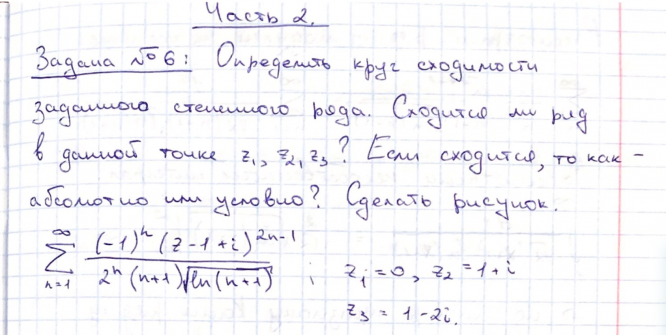 Часть 2.
Задача №6: Определить круг сходимости
заданного степенного ряда. Сходится ли ряд
в данной точке z₁, z₂, z₃? Если сходится, то как -
абсолютно или условно? Сделать рисунок.
∑_{n=1}^{∞} \frac{(-1)^n (z-1+i)^{2n-1}}{2^n (n+1)\sqrt{\ln(n+1)}} ; z₁=0, z₂=1+i
z₃ = 1-2i.